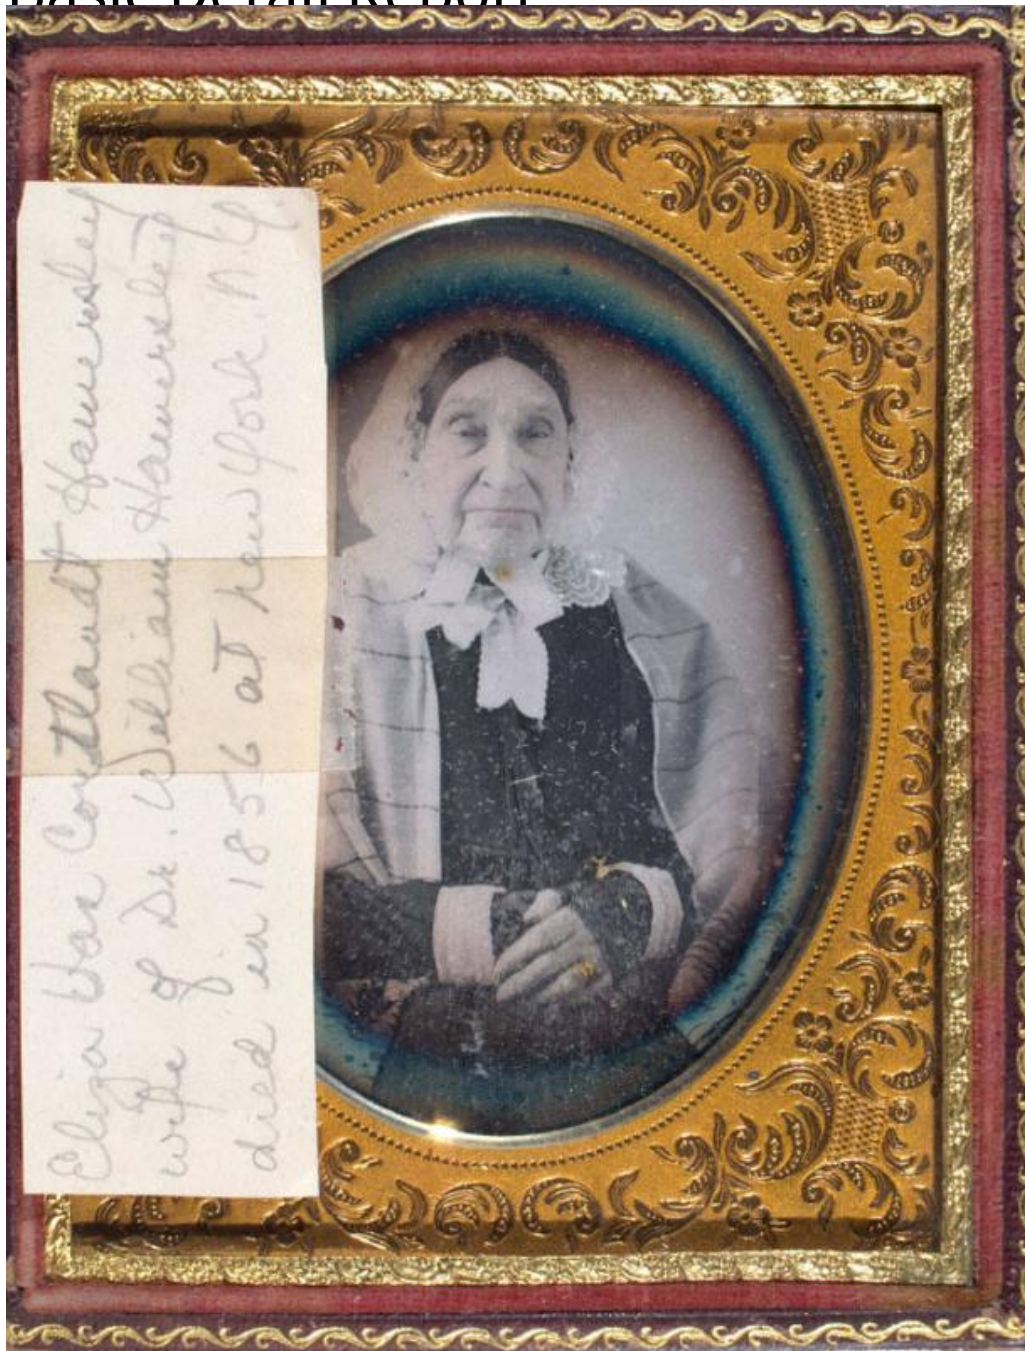 Basic Detail Report
Eliza Van Cortlandt Hamersley
wife of Dr. William Hamersley
died in 1856 at new York. N.Y.